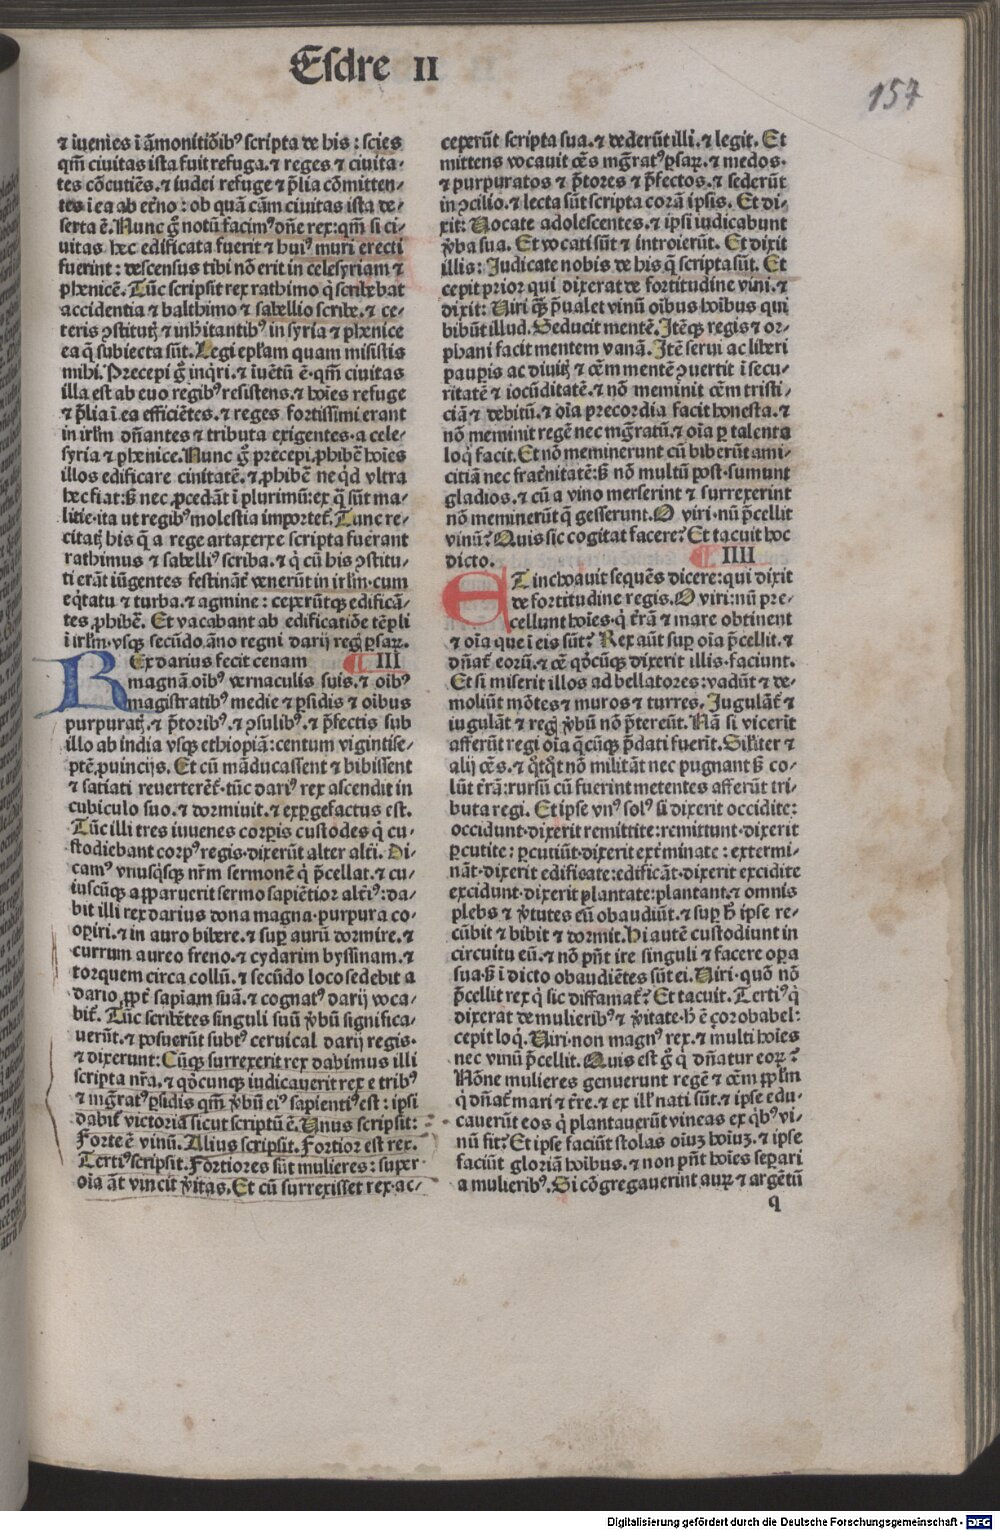 Esdre II
157
⁊ iuenies ī āmonitiōibꝰ scripta de his : scies
qm̄ ciuitas ista fuit refuga.⁊ reges ⁊ ciuita-
tes cōcutiēs.⁊ iudei refuge ⁊ p̄lia cōmitten-
tes ī ea ab et̄no : ob quā cām ciuitas ista de-
serta ē.Nunc g̊ notū facimꝰ dn̄e rex:qm̄ si ci-
uitas hec edificata fuerit ⁊ huiꝰ muri erecti
fuerint : descensus tibi nō erit in celesyriam ⁊
phenicē.Tūc scripsit rex rathimo q̇ scribebat
accidentia ⁊ balthimo ⁊ sabellio scribe.⁊ ce-
teris ꝯstitutꝭ ⁊ inh̄itantibꝰ in syria ⁊ phenice
ea q̄ subiecta sūt.Legi ep̄lam quam misistis
mihi.Precepi g̊ inq̇ri.⁊ iuētū ē.qm̄ ciuitas
illa est ab euo regibꝰ resistens.⁊ hoies refuge
⁊ p̄lia ī ea efficiētes.⁊ reges fortissimi erant
in irl̄m dn̄antes ⁊ tributa exigentes.a cele-
syria ⁊ phenice.Nunc g̊ precepi ꝓhibē hoīes
illos edificare ciuitatē.⁊ ꝓhibē ne qͥd vltra
hec fiat:sꝫ nec ꝓcedāt ī plurimū:ex q̄ sūt ma-
litie.ita ut regibꝰ molestia importet̄.Tunc re-
citatꝭ his q̄ a rege artaxerxe scripta fuerant
rathimus ⁊ sabelliꝰ scriba.⁊ q̇ cū his ꝯstitu-
ti erāt iūgentes festināt̄ venerūt in irl̄m.cum
eq̇tatu ⁊ turba.⁊ agmine : ceperūtqꝫ edificā-
tes ꝓhibē. Et vacabant ab edificatiōe tēpli
ī irl̄m.vsqꝫ secūdo āno regni darij regꝭ ꝑsaꝝ.
REx darius fecit cenam III
magnā oībꝰ vernaculis suis.⁊ oībꝰ
magistratibꝰ medie ⁊ ꝑsidis ⁊ oībus
purpuratꝭ.⁊ p̄toribꝰ.⁊ ꝯsulibꝰ.⁊ p̄fectis sub
illo ab india vsqꝫ ethiopiā:centum vigintise-
ptē ꝓuincijs. Et cū māducassent ⁊ bibissent
⁊ satiati reuerterēt̄.tūc dariꝰ rex ascendit in
cubiculo suo.⁊ dormiuit.⁊ exꝑgefactus est.
Tūc illi tres iuuenes corꝑis custodes q̇ cu-
stodiebant corpꝰ regis.dixerūt alter alt̄i. Di-
camꝰ vnusq̇sqꝫ nr̄m sermonē q̇ p̄cellat.⁊ cu-
iuscūqꝫ apparuerit sermo sapiētior alt̄iꝰ:da-
bit illi rex darius dona magna.purpura co-
oꝑiri.⁊ in auro bibere.⁊ suꝑ aurū dormire.⁊
currum aureo freno.⁊ cydarim byssinam.⁊
torquem circa collū.⁊ secūdo loco sedebit a
dario ꝓpt̄ sapīam suā.⁊ cognatꝰ darij voca-
bit̄. Tūc scribētes singuli suū v̄bū significa-
uerūt.⁊ posuerūt subtꝰ ceruical darij regis.
⁊ dixerunt:Cūqꝫ surrexerit rex dabimus illi
scripta nr̄a.⁊ qō̇cunqꝫ iudicauerit rex e tribꝰ
⁊ mḡratꝰ ꝑsidis qm̄ v̄bū eiꝰ sapientiꝰ est : ipsi
dabit̄ victoria sicut scriptū ē.Unus scripsit:
Forte ē vinū. Alius scripsit. Fortior est rex.
Tertiꝰ scripsit. Fortiores sūt mulieres : super
oīa āt vincit v̄itas. Et cū surrexisset rex.ac-
ceperūt scripta sua.⁊ dederūt illi.⁊ legit. Et
mittens vocauit oēs mḡratꝰ ꝑsaꝝ.⁊ medos.
⁊ purpuratos ⁊ p̄tores ⁊ p̄fectos.⁊ sederūt
in ꝯcilio.⁊ lecta sūt scripta corā ipsis. Et di-
xit: Vocate adolescentes.⁊ ipsi iudicabunt
v̄ba sua. Et vocati sūt ⁊ introierūt. Et dixit
illis: Iudicate nobis de his q̄ scripta sūt. Et
cepit prior qui dixerat de fortitudine vini.⁊
dixit: Viri q̄ꝫ p̄ualet vinū oībus hoībus qui
bibūt illud.Seducit mentē.Itēqꝫ regis ⁊ or-
phani facit mentem vanā.Itē serui ac liberi
pauꝑis ac diuitꝭ ⁊ oēm mentē ꝯuertit ī secu-
ritatē ⁊ iocūditatē.⁊ nō meminit oēm tristi-
ciā ⁊ debitū.⁊ oīa precordia facit honesta.⁊
nō meminit regē nec mḡratū.⁊ oīa ꝑ talenta
loq̇ facit. Et nō meminerunt cū biberūt ami-
citiā nec frat̄nitatē:sꝫ nō multū post.sumunt
gladios.⁊ cū a vino merserint ⁊ surrexerint
nō meminerūt q̄ gesserunt. O viri.nū p̄cellit
vinū? Quis sic cogitat facere? Et tacuit hoc
dicto. IIII
ET inchoauit sequēs dicere:qui dixit
de fortitudine regis. O viri:nū pre-
cellunt hoīes.q̇ t̄rā ⁊ mare obtinent
⁊ oīa que ī eis sūt? Rex aūt suꝑ oīa p̄cellit.⁊
dn̄at̄ eorū.⁊ oē qō̇cūqꝫ dixerit illis.faciunt.
Et si miserit illos ad bellatores:vadūt ⁊ de-
moliūt mōtes ⁊ muros ⁊ turres. Iugulāt̄ ⁊
iugulāt ⁊ regꝭ v̄bū nō p̄tereūt. Nā si vicerīt
afferūt regi oīa q̄cūqꝫ p̄dati fuerīt. Siliter ⁊
alij oēs.⁊ q̇tq̇t nō militāt nec pugnant sꝫ co-
lūt t̄rā:rursū cū fuerint metentes afferūt tri-
buta regi. Et ipse vnꝰ solꝰ si dixerit occidite:
occidunt.dixerit remittite:remittunt.dixerit
ꝑcutite : ꝑcutiūt.dixerit ext̄minate : extermi-
nāt.dixerit edificate:edificāt.dixerit excidite
excidunt.dixerit plantate:plantant.⁊ omnis
plebs ⁊ v̄tutes eū obaudiūt.⁊ suꝑ h̄ ipse re-
cūbit ⁊ bibit ⁊ dormit.Hi autē custodiunt in
circuitu eū.⁊ nō pn̄t ire singuli ⁊ facere oꝑa
sua.sꝫ ī dicto obaudiētes sūt ei. Viri.quō nō
p̄cellit rex q̇ sic diffamat̄? Et tacuit. Tertiꝰ q̇
dixerat de mulieribꝰ ⁊ v̄itate.h̄ ē çorobabel:
cepit loq̇. Viri.non magnꝰ rex.⁊ multi hoīes
nec vinū p̄cellit. Quis est g̊ q̇ dn̄atur eoꝝ?
Nōne mulieres genuerunt regē ⁊ oēm ppl̄m
q̇ dn̄at̄ mari ⁊ t̄re.⁊ ex ill̄ nati sūt.⁊ ipse edu-
cauerūt eos q̇ plantauerūt vineas ex q̇bꝰ vi-
nū fit? Et ipse faciūt stolas oīuꝫ hoīuꝫ.⁊ ipse
faciūt gloriā hoībus.⁊ non pn̄t hoīes separi
a mulieribꝰ. Si cōgregauerint auꝝ ⁊ argētū
q
Digitalisierung gefördert durch die Deutsche Forschungsgemeinschaft - DFG